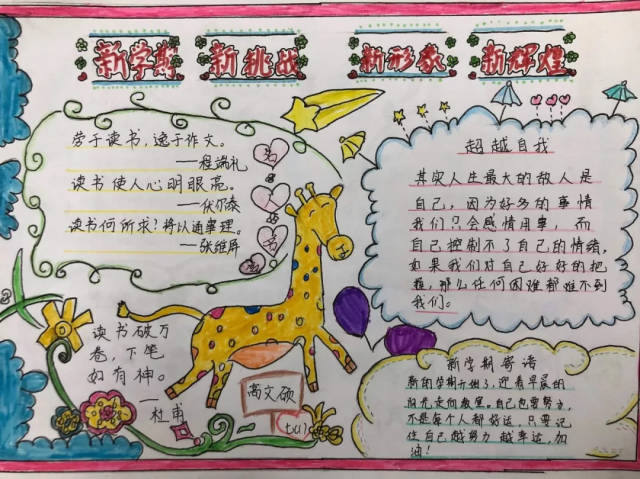 新学期 新挑战 新形象 新辉煌
劳于读书，逸于作文。
——程端礼
读书使人心明眼亮。
——伏尔泰
读书何所求？将以通事理。
——张维屏
名
人
书
超越自我
其实人生最大的敌人是
自己，因为好多的事情
我们只会感情用事，而
自己控制不了自己的情绪，
如果我们对自己好好的把
握，那么任何困难都难不到
我们。
读书破万
卷，下笔
如有神。
——杜甫
高文硕
七(1)
新学期寄语
新的学期开始了，迎着早晨的
阳光走向教室，自己也要努力，
不是每个人都好运，只要记
住自己越努力越幸运，加
油！